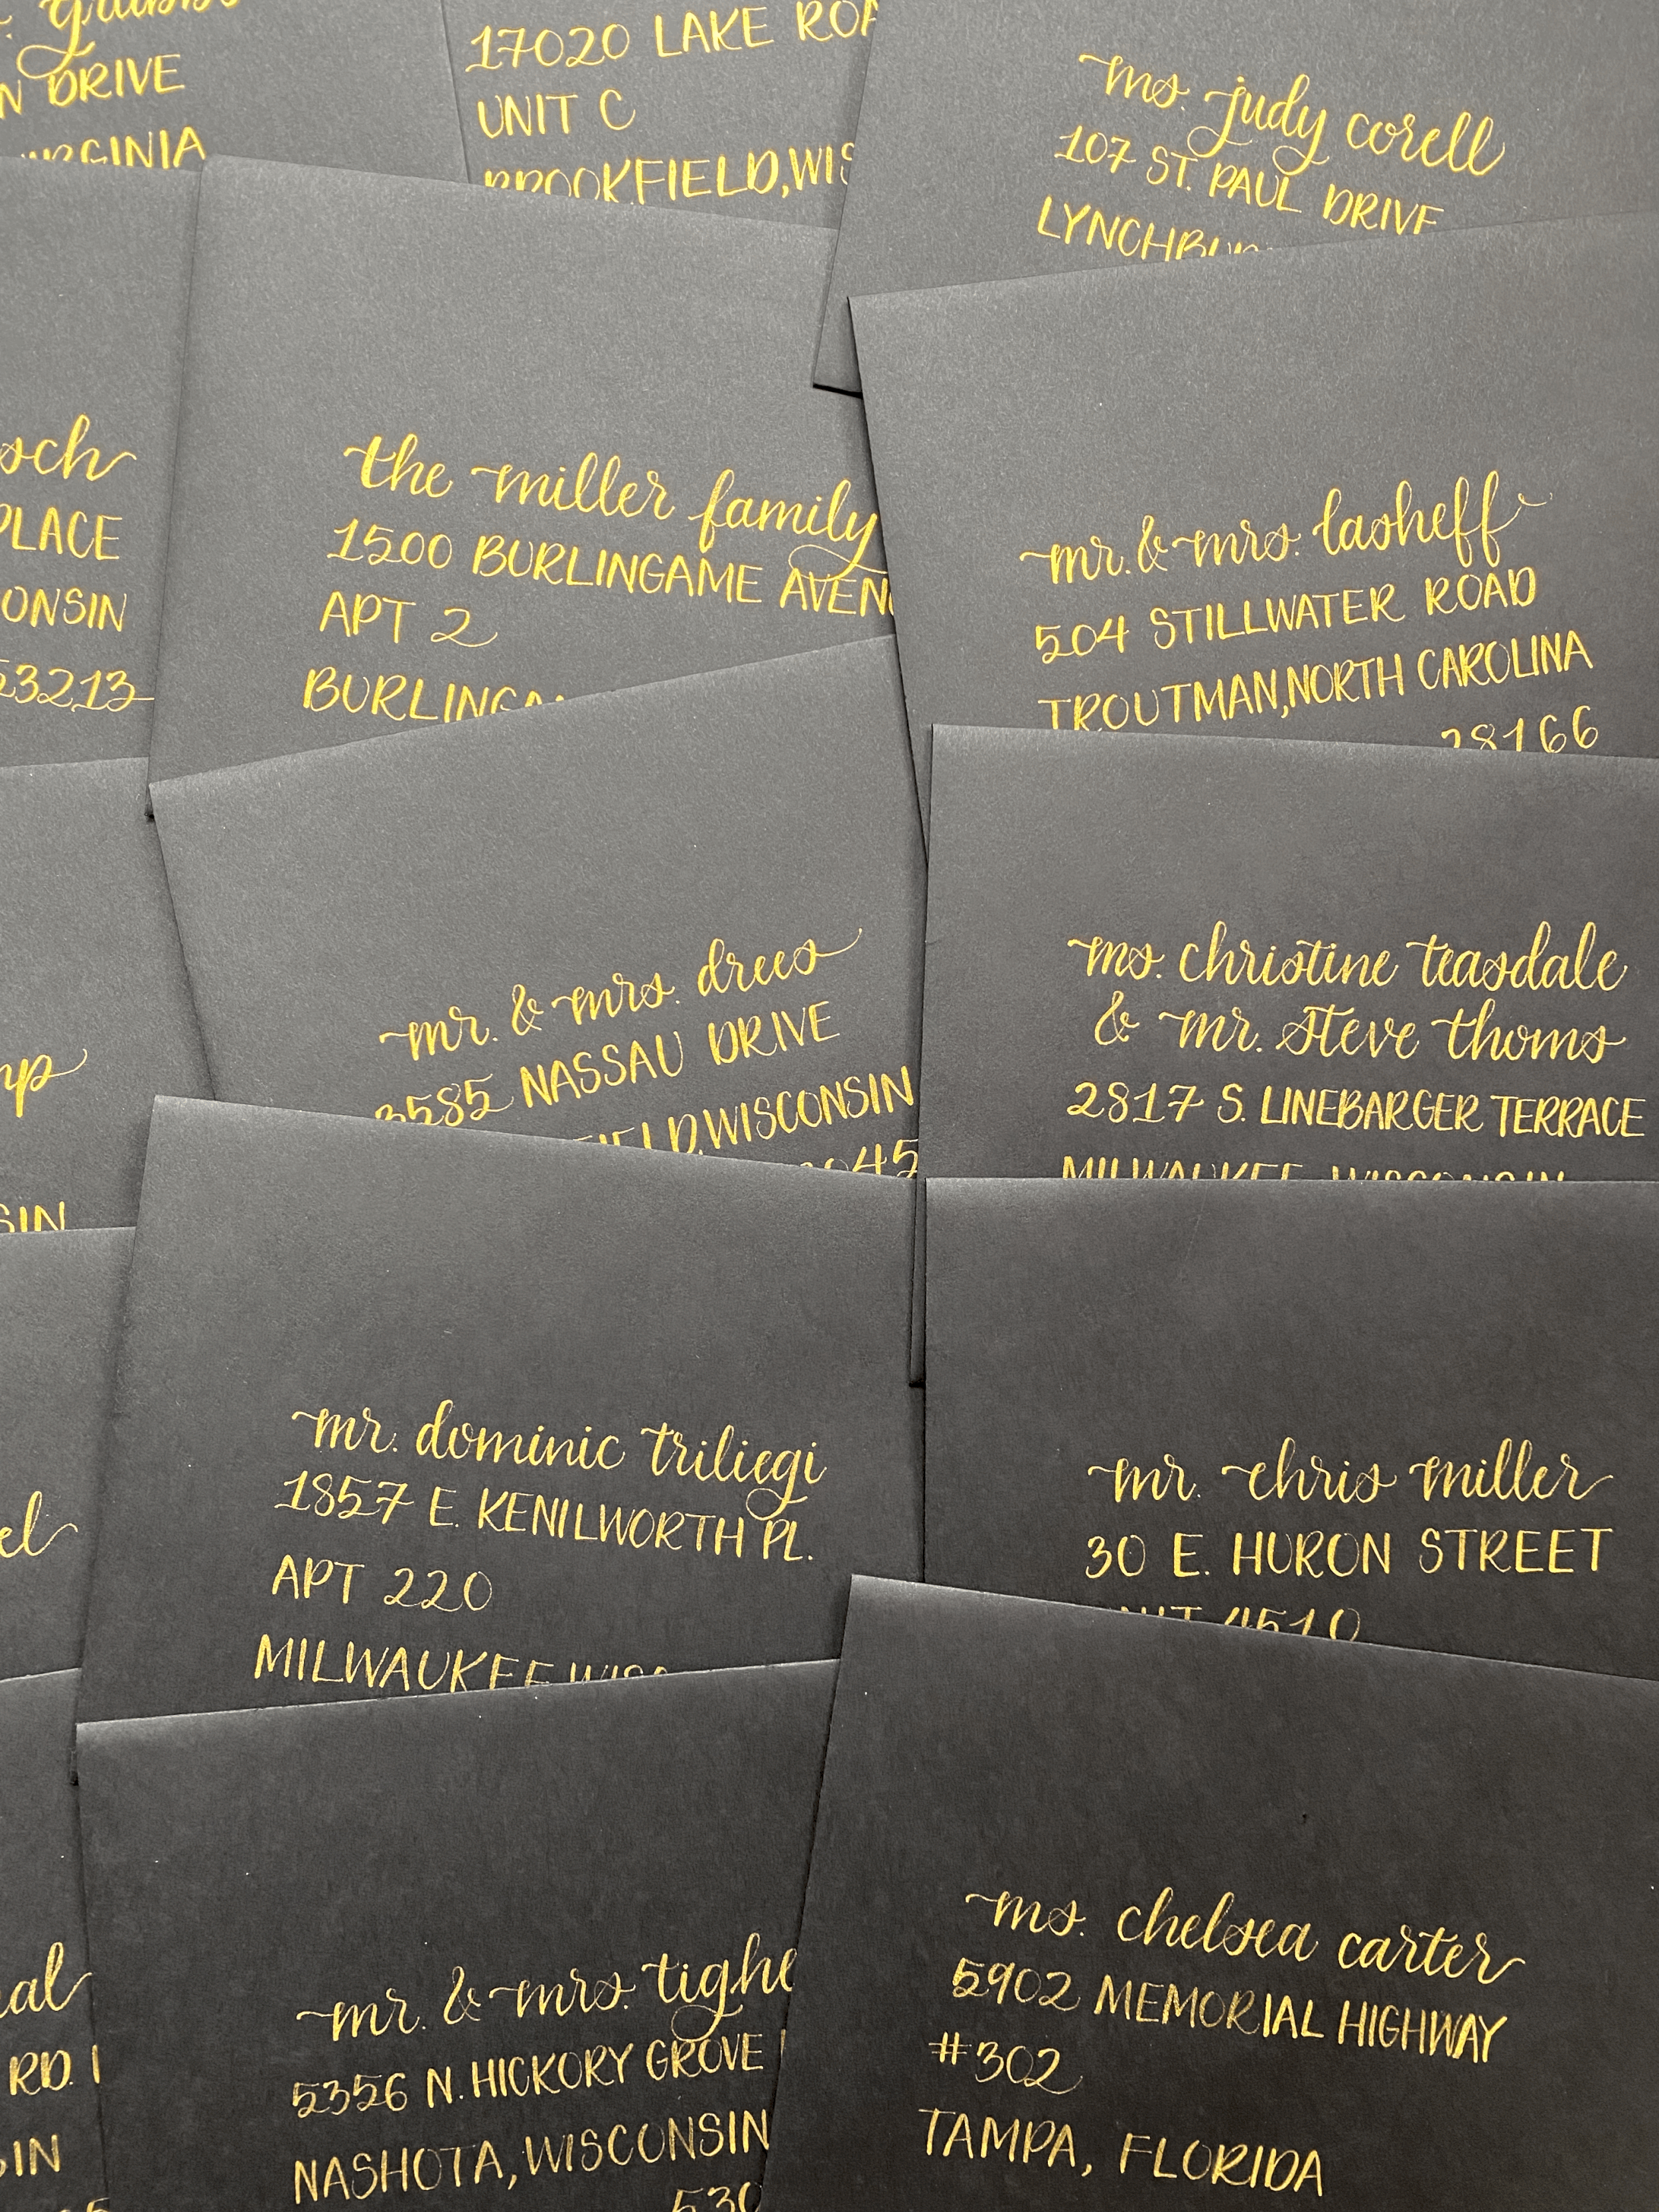 DRIVE
17020 LAKE
UNIT C
BROOKFIELD,
ms. judy corell
107 ST. PAUL DRIVE
PLACE
53213
the miller family
1500 BURLINGAME
APT 2
mr. & mrs. lasheff
504 STILLWATER ROAD
TROUTMAN, NORTH CAROLINA
28166
mr. & mrs. drees
3585 NASSAU DRIVE
WISCONSIN
ms. christine teasdale
& mr. steve thoms
2817 S. LINEBARGER TERRACE
MILWAUKEE, WISCONSIN
mr. dominic triliegi
1857 E. KENILWORTH PL.
APT 220
MILWAUKEE
mr. chris miller
30 E. HURON STREET
4510
RD.
mr. & mrs. tighe
5356 N. HICKORY GROVE
NASHOTA, WISCONSIN
ms. chelsea carter
5902 MEMORIAL HIGHWAY
#302
TAMPA, FLORIDA